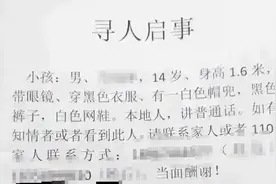 寻人启事
小孩：男、 ，14 岁、身高 1.6 米，
带眼镜、穿黑色衣服、有一白色帽兜，黑
裤子，白色网鞋。本地人，讲普通话。如有
知情者或者看到此人。请联系家人或者 110
家人联系方式： （
0 当面酬谢！